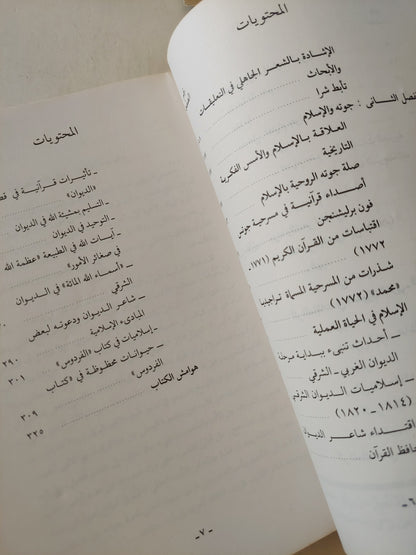 المحتويات
الإشادة بالشعر الجاهلي في التعليقات
والأبحاث
تأبط شرا
فصل الثانى : جوته والإسلام
العلاقة بالإسلام والأسس الفكرية
التاريخية
صلة جوته الروحية بالإسلام
أصداء قرآنية في مسرحية جوتس
فون برليشنجن
اقتباسات من القرآن الكريم (١٧٧١-
١٧٧٢)
شذرات من المسرحية المسماة تراجيديا
«محمد» (١٧٧٢)
الإسلام في الحياة العملية
ــ أحداث تنبىء ببداية مرحلة
الديوان الغربي ــ الشرقي
ــ إسلاميات الديوان الشرقي
(١٨١٤ ــ ١٨٢٠)
اقتداء شاعر الديوان
حافظ القرآن
ــ ٦
المحتويات
ــ تأثيرات قرآنية في
«الديوان»
ــ التسليم بمشيئة الله في الديوان
ــ التوحيد في الديوان
ــ آيات الله في الطبيعة «عظمة الله
في صغائر الأمور»
ــ «أسماء الله المائة» في الديوان
الشرقي
ــ شاعر الديوان ودعوته لبعض
المبادىء الإسلامية
ــ إسلاميات في كتاب «الفردوس» ٢٩٠
ــ حيوانات محظوظة في «كتاب
الفردوس» ٣٠١
هوامش الكتاب ٣٠٩
٣٣٥
ــ ٧ ــ